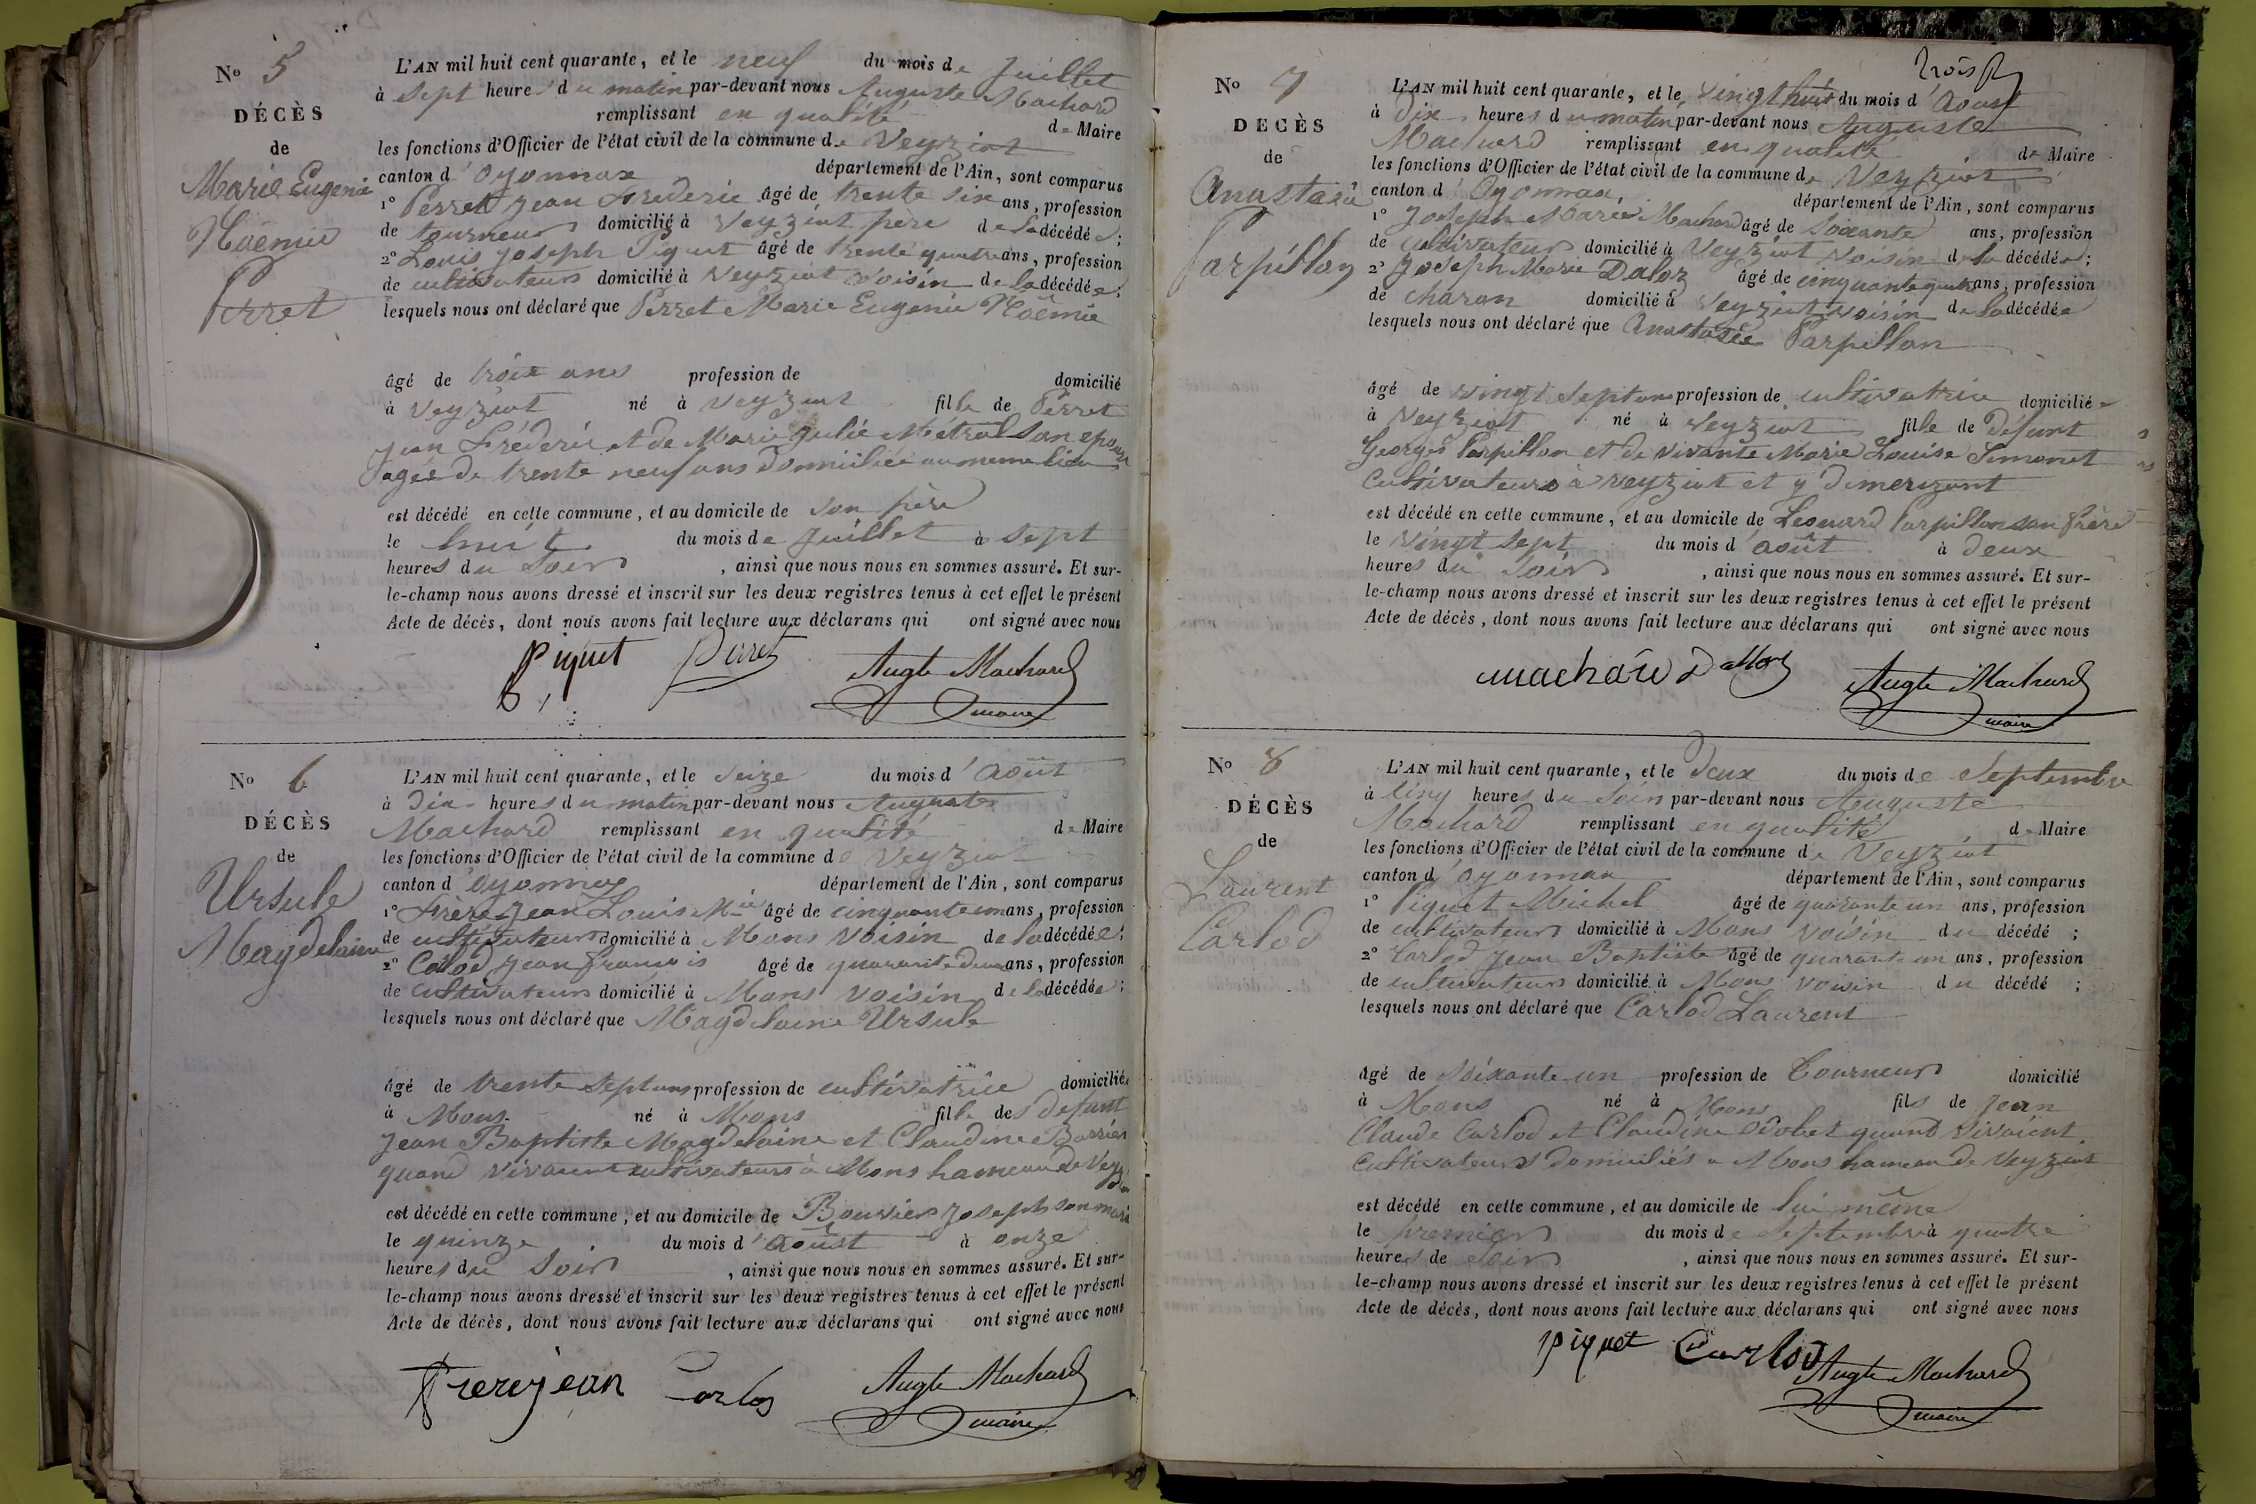 N° 5
DÉCÈS
de
Marie Eugenie
Noëmie
Perret
L'AN mil huit cent quarante, et le neuf du mois de Juillet
à Sept heures du matin par-devant nous Auguste Machard
remplissant en qualité de Maire
les fonctions d'Officier de l'état civil de la commune de Veyziat
canton d'Oyonnax département de l'Ain, sont comparus
1° Perret Jean Frederic âgé de trente six ans, profession
de tourneur domicilié à Veyziat père de la décédée;
2° Louis Joseph Piquet âgé de trente quatre ans, profession
de cultivateur domicilié à Veyziat voisin de la décédée;
lesquels nous ont déclaré que Perret Marie Eugenie Noëmie
âgé de trois ans profession de domicilié
à Veyziat né à Veyziat fille de Perret
Jean Fréderic et de Marie Julie Métral son epouse
agée de trente neuf ans domiciliée au meme lieu
est décédé en cette commune, et au domicile de son père
le huit du mois de Juillet à sept
heures du Soir, ainsi que nous nous en sommes assuré. Et sur-
le-champ nous avons dressé et inscrit sur les deux registres tenus à cet effet le présent
Acte de décès, dont nous avons fait lecture aux déclarans qui ont signé avec nous
Piquet Perret Augte Machard
maire
N° 6
DÉCÈS
de
Ursule
Magdelaine
L'AN mil huit cent quarante, et le seize du mois d'Août
à Dix heures du matin par-devant nous Auguste
Machard remplissant en qualité de Maire
les fonctions d'Officier de l'état civil de la commune de Veyziat
canton d'Oyonnax département de l'Ain, sont comparus
1° Frèrejean Louis Mie âgé de cinquante un ans, profession
de cultivateur domicilié à Mons voisin de la décédée;
2° Carlod Jean François âgé de quarante deux ans, profession
de cultivateur domicilié à Mons voisin de la décédée;
lesquels nous ont déclaré que Magdelaine Ursule
âgé de trente sept ans profession de cultivatrice domiciliée
à Mons né à Mons fille des defunt
Jean Baptiste Magdelaine et Claudine
quand vivaient cultivateurs à Mons hameau de Veyziat
est décédé en cette commune, et au domicile de Bouvier Joseph son mari
le quinze du mois d'Août à onze
heures du Soir, ainsi que nous nous en sommes assuré. Et sur-
le-champ nous avons dressé et inscrit sur les deux registres tenus à cet effet le présent
Acte de décès, dont nous avons fait lecture aux déclarans qui ont signé avec nous
frerejean Carlod Augte Machard
maire
trois
N° 7
DECÈS
de
Anastasie
Parpillon
L'AN mil huit cent quarante, et le vingt huit du mois d'Août
à Dix heures du matin par-devant nous Auguste
Machard remplissant en qualité de Maire
les fonctions d'Officier de l'état civil de la commune de Veyziat
canton d'Oyonnax département de l'Ain, sont comparus
1° Joseph Marie Machard âgé de Soixante ans, profession
de cultivateur domicilié à Veyziat voisin de la décédée;
2° Joseph Marie Daloz âgé de cinquante quatre ans, profession
de charon domicilié à Veyziat voisin de la décédée
lesquels nous ont déclaré que Anastasie Parpillon
âgé de vingt sept ans profession de cultivatrice domiciliée
à Veyziat né à Veyziat fille de Défunt
Georges Parpillon et de vivante Marie Louise Simonet
Cultivateurs à Veyziat et y demeurant
est décédé en cette commune, et au domicile de Léonard Parpillon son frère
le vingt sept du mois d'août à deux
heures du Soir, ainsi que nous nous en sommes assuré. Et sur-
le-champ nous avons dressé et inscrit sur les deux registres tenus à cet effet le présent
Acte de décès, dont nous avons fait lecture aux déclarans qui ont signé avec nous
machard Dalloz Augte Machard
maire
N° 8
DÉCÈS
de
Laurent
Carlod
L'AN mil huit cent quarante, et le Deux du mois de Septembre
à Cinq heures du Soir par-devant nous Auguste
Machard remplissant en qualité de Maire
les fonctions d'Officier de l'état civil de la commune de Veyziat
canton d'Oyonnax département de l'Ain, sont comparus
1° Piquet Michel âgé de quarante un ans, profession
de cultivateur domicilié à Mons voisin du décédé;
2° Carlod Jean Baptiste âgé de quarante un ans, profession
de cultivateur domicilié à Mons voisin du décédé;
lesquels nous ont déclaré que Carlod Laurent
âgé de soixante un profession de Tourneur domicilié
à Mons né à Mons fils de Jean
Claude Carlod et Claudine Odobet quand vivaient
cultivateurs domiciliés à Mons hameau de Veyziat
est décédé en cette commune, et au domicile de lui même
le premier du mois de Septembre à quatre
heures de Soir, ainsi que nous nous en sommes assuré. Et sur-
le-champ nous avons dressé et inscrit sur les deux registres tenus à cet effet le présent
Acte de décès, dont nous avons fait lecture aux déclarans qui ont signé avec nous
Piquet Carlod Augte Machard
maire